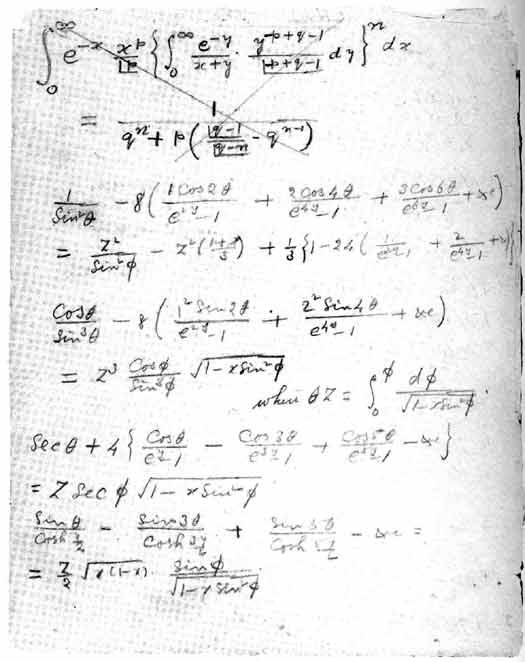 ∫₀^∞ e^{-x} x^p/|p {∫₀^∞ e^{-y}/(x+y) · y^{-p+q-1}/|-p+q-1 dy}^n dx
= 1/(q^n + p(|q-1/|q-n - q^{n-1}))
1/Sin²θ - 8(1Cos2θ/(e^{2y}-1) + 2Cos4θ/(e^{4y}-1) + 3Cos6θ/(e^{6y}-1) + &c)
= Z²/Sin²φ - Z²((1+x)/3) + 1/3{1-24(1/(e^{2y}-1) + 2/(e^{4y}-1) + &c)}
Cosθ/Sin³θ - 8(1²Sin2θ/(e^{2y}-1) + 2²Sin4θ/(e^{4y}-1) + &c)
= Z³ Cosφ/Sin³φ √(1-xSin²φ)
where θZ = ∫₀^φ dφ/√(1-xSin²φ)
Secθ + 4{Cosθ/(e^y-1) - Cos3θ/(e^{3y}-1) + Cos5θ/(e^{5y}-1) - &c}
= Z Secφ √(1-xSin²φ)
Sinθ/Cosh y/2 - Sin3θ/Cosh 3y/2 + Sin5θ/Cosh 5y/2 - &c =
= Z/2 √(x(1-x)) · Sinφ/√(1-xSin²φ)